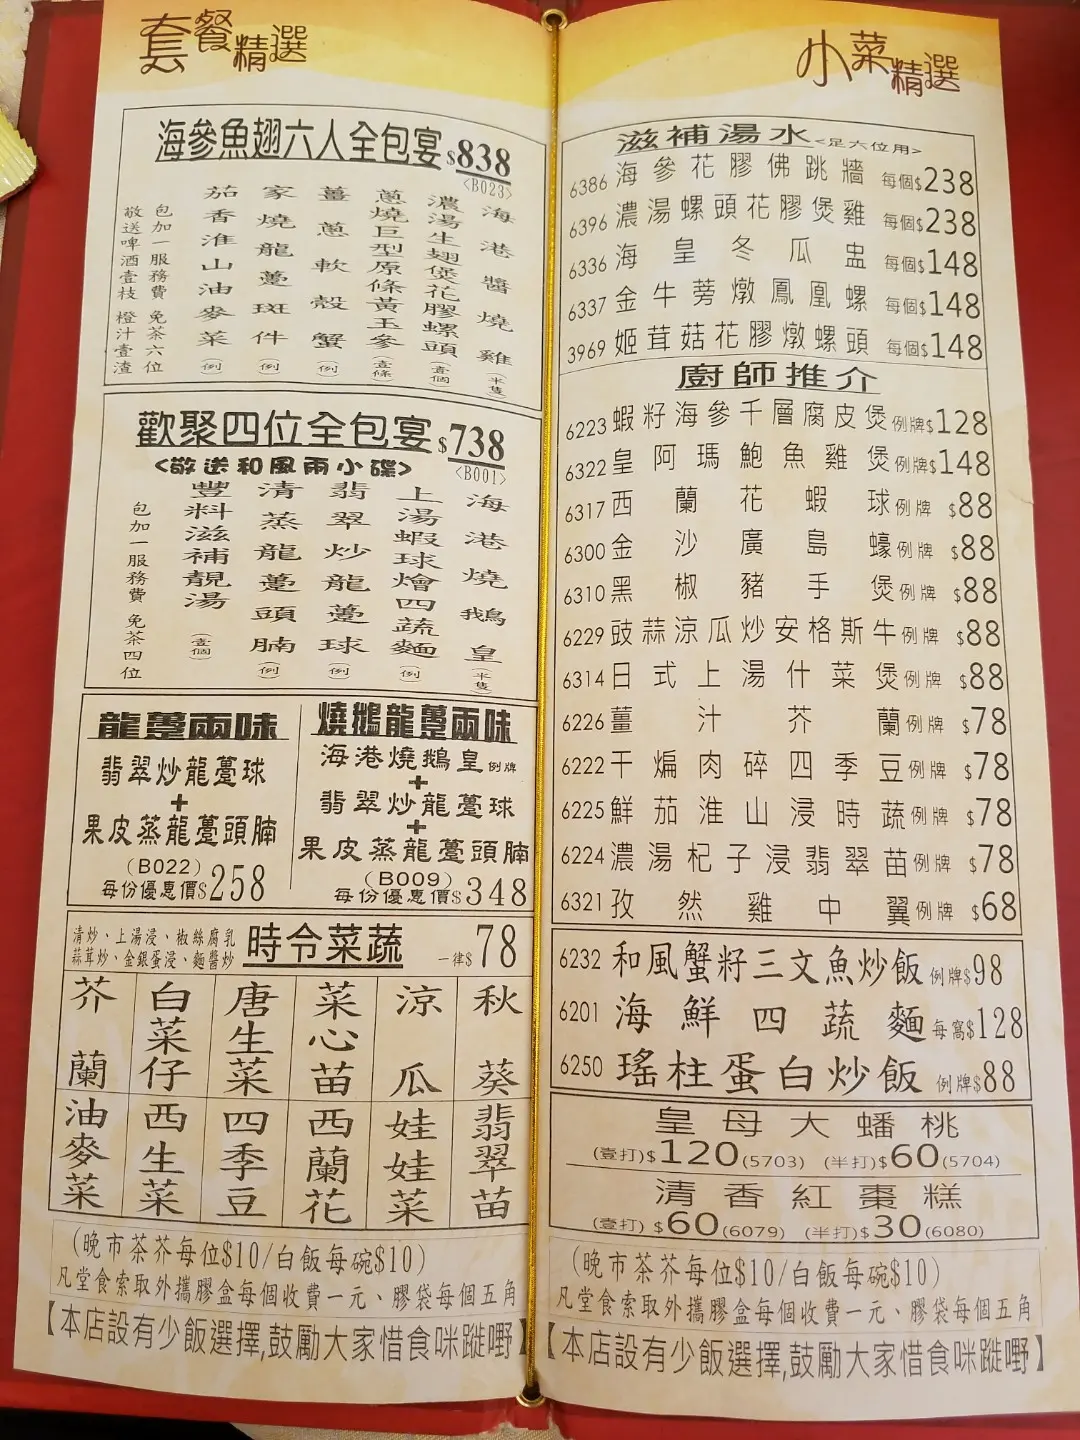 套餐精選
海參魚翅六人全包宴 $838
<B023>
海港醬燒雞(半隻)
濃湯生翅煲花膠螺頭(壹個)
蔥燒巨型原條黃玉參(壹條)
薑蔥軟殼蟹(例)
家燒龍躉斑件(例)
茄香淮山油麥菜(例)
包加一服務費 免茶六位
敬送啤酒壹枝 橙汁壹渣
歡聚四位全包宴 $738
<敬送和風兩小碟>
<B001>
海港燒鵝皇(半隻)
上湯蝦球燴四蔬麵(例)
翡翠炒龍躉球(例)
清蒸龍躉頭腩(例)
豐料滋補靚湯(壹個)
包加一服務費 免茶四位
龍躉兩味
翡翠炒龍躉球
+
果皮蒸龍躉頭腩
(B022)
每份優惠價$258
燒鵝龍躉兩味
海港燒鵝皇例牌
+
翡翠炒龍躉球
+
果皮蒸龍躉頭腩
(B009)
每份優惠價$348
清炒、上湯浸、椒絲腐乳
蒜茸炒、金銀蛋浸、麵醬炒
時令菜蔬 一律$78
芥蘭 白菜仔 唐生菜 菜心苗 涼瓜 秋葵
油麥菜 西生菜 四季豆 西蘭花 娃娃菜 翡翠苗
(晚市茶芥每位$10/白飯每碗$10)
凡堂食索取外攜膠盒每個收費一元、膠袋每個五角
【本店設有少飯選擇,鼓勵大家惜食咪蹝嘢】
小菜精選
滋補湯水<足六位用>
6386 海參花膠佛跳牆 每個$238
6396 濃湯螺頭花膠煲雞 每個$238
6336 海皇冬瓜盅 每個$148
6337 金牛蒡燉鳳凰螺 每個$148
3969 姬茸菇花膠燉螺頭 每個$148
廚師推介
6223 蝦籽海參千層腐皮煲 例牌$128
6322 皇阿瑪鮑魚雞煲 例牌$148
6317 西蘭花蝦球 例牌 $88
6300 金沙廣島蠔 例牌 $88
6310 黑椒豬手煲 例牌 $88
6229 豉蒜涼瓜炒安格斯牛 例牌 $88
6314 日式上湯什菜煲 例牌 $88
6226 薑汁芥蘭 例牌 $78
6222 干煸肉碎四季豆 例牌 $78
6225 鮮茄淮山浸時蔬 例牌 $78
6224 濃湯杞子浸翡翠苗 例牌 $78
6321 孜然雞中翼 例牌 $68
6232 和風蟹籽三文魚炒飯 例牌$98
6201 海鮮四蔬麵 每窩$128
6250 瑤柱蛋白炒飯 例牌$88
皇母大蟠桃
(壹打)$120(5703) (半打)$60(5704)
清香紅棗糕
(壹打)$60(6079) (半打)$30(6080)
(晚市茶芥每位$10/白飯每碗$10)
凡堂食索取外攜膠盒每個收費一元、膠袋每個五角
【本店設有少飯選擇,鼓勵大家惜食咪蹝嘢】